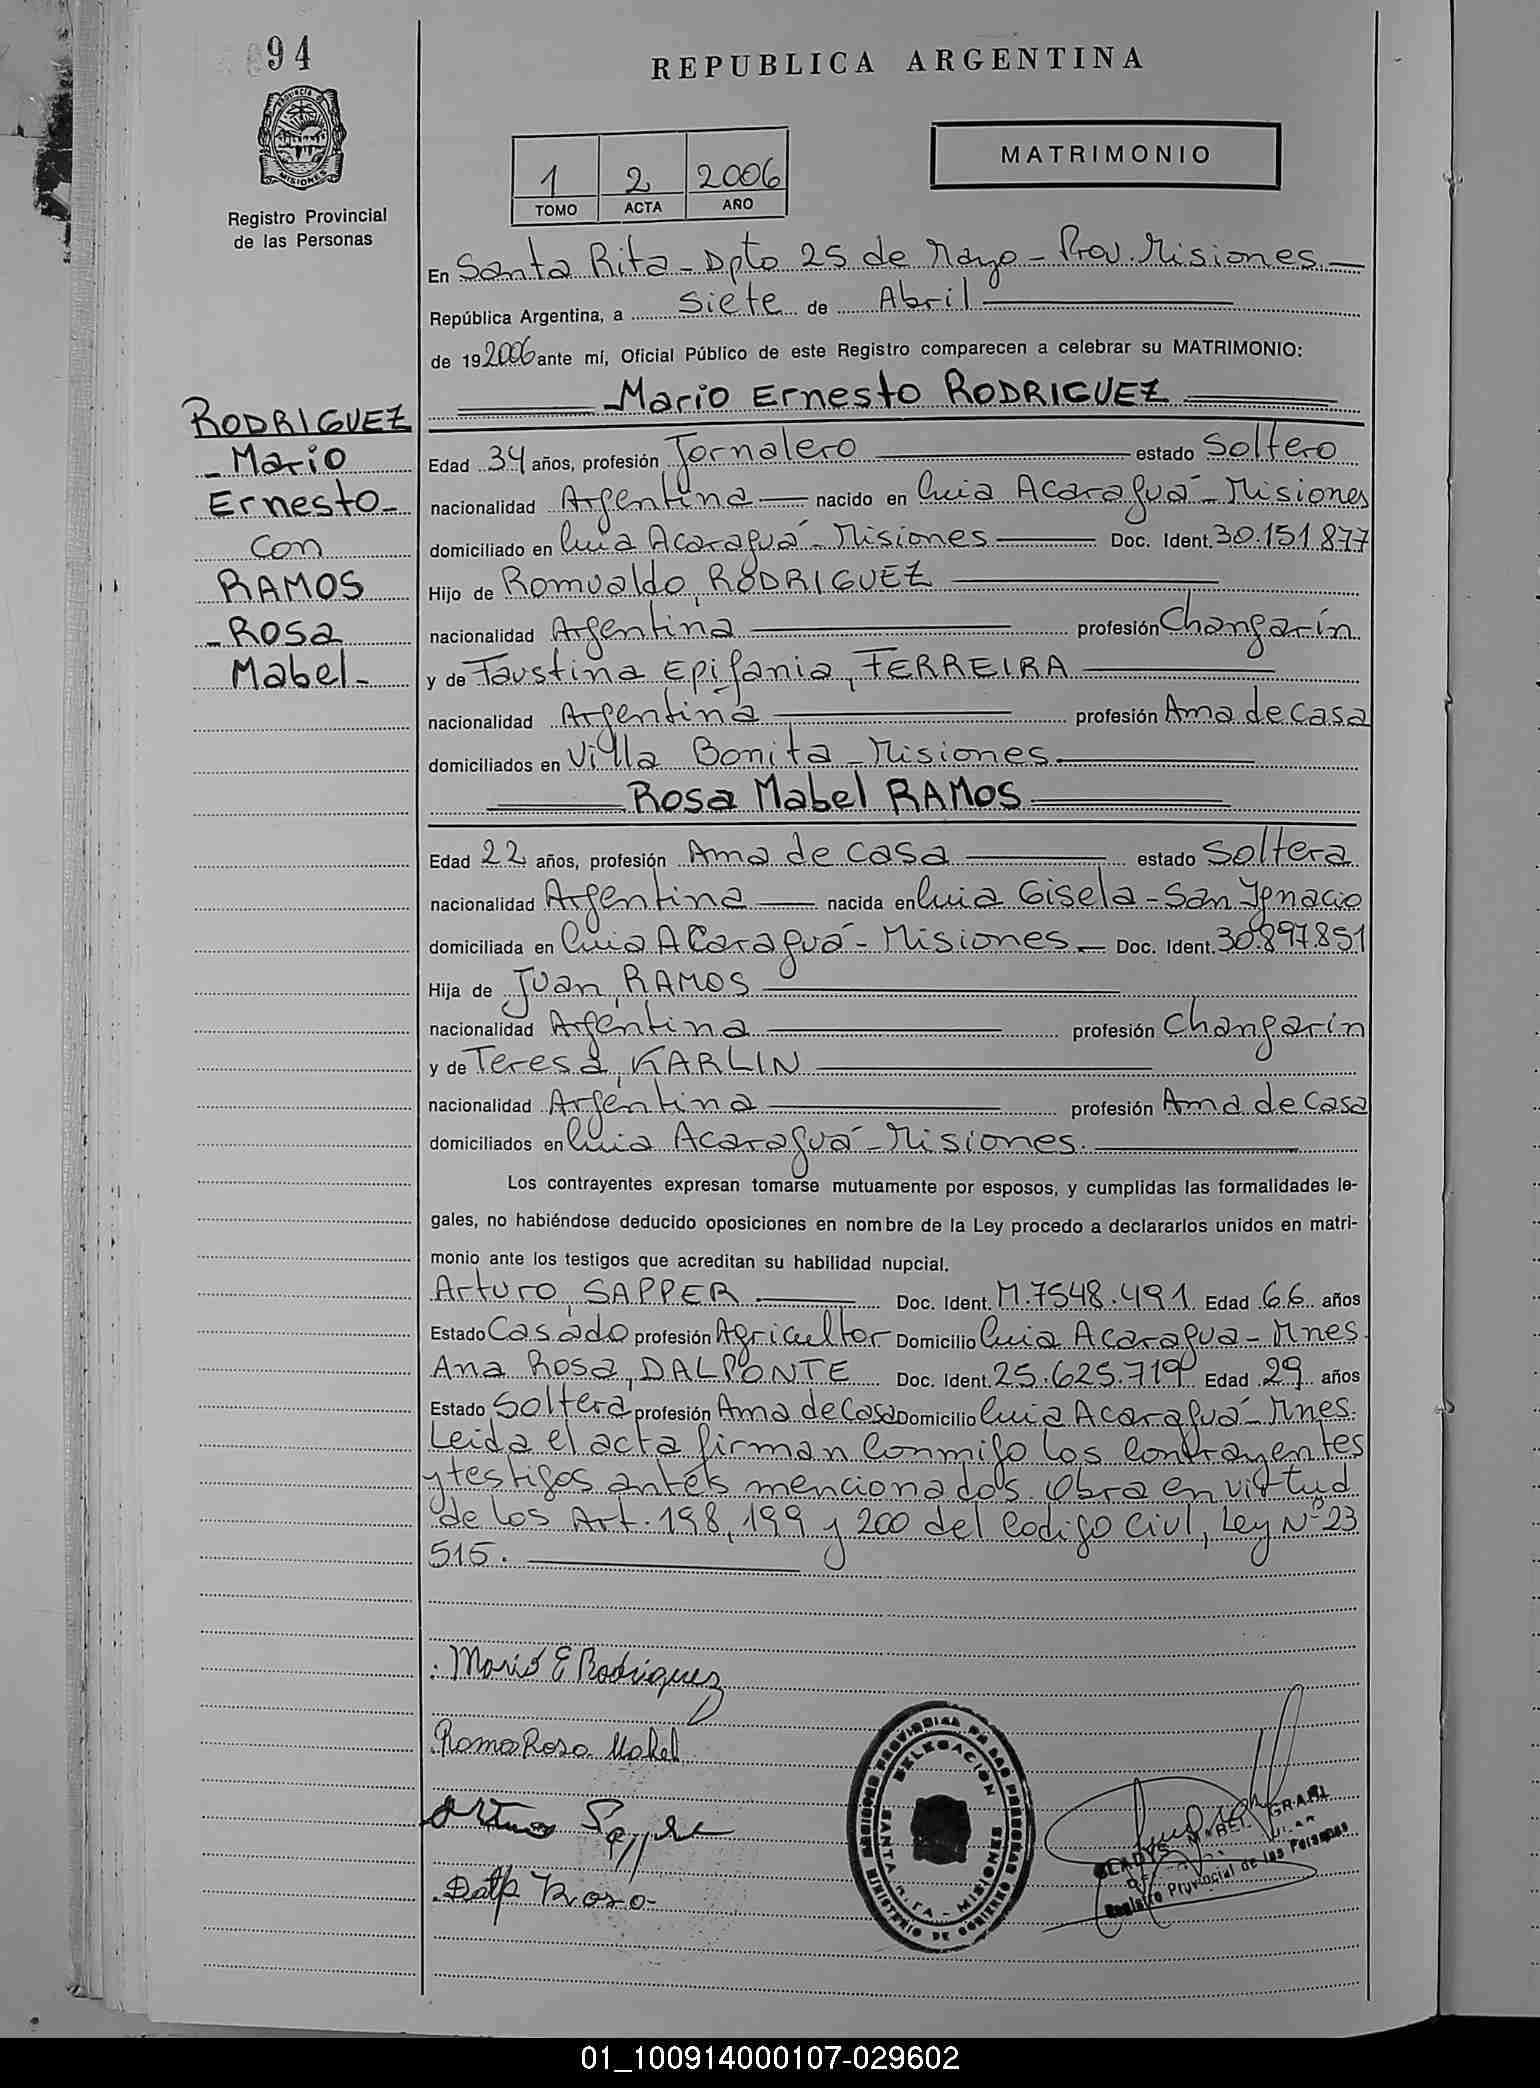 94
REPUBLICA ARGENTINA
PROVINCIA DE
MISIONES
Registro Provincial
de las Personas
1 2 2006
TOMO ACTA AÑO
MATRIMONIO
En Santa Rita - Dpto 25 de Mayo - Prov. Misiones
República Argentina, a Siete de Abril
de 192006 ante mí, Oficial Público de este Registro comparecen a celebrar su MATRIMONIO:
Mario Ernesto RODRIGUEZ
RODRIGUEZ
- Mario
Ernesto -
con
RAMOS
- Rosa
Mabel -
Edad 34 años, profesión Jornalero estado Soltero
nacionalidad Argentina nacido en Cnia Acaraguá - Misiones
domiciliado en Cnia Acaraguá - Misiones Doc. Ident. 30.151.877
Hijo de Romualdo, RODRIGUEZ
nacionalidad Argentina profesión Changarín
y de Faustina Epifania, FERREIRA
nacionalidad Argentina profesión Ama de casa
domiciliados en Villa Bonita - Misiones.
Rosa Mabel RAMOS
Edad 22 años, profesión Ama de casa estado Soltera
nacionalidad Argentina nacida en Cnia Gisela - San Ignacio
domiciliada en Cnia Acaraguá - Misiones. Doc. Ident. 30.897.851
Hija de Juan, RAMOS
nacionalidad Argentina profesión Changarín
y de Teresa, KARLIN
nacionalidad Argentina profesión Ama de casa
domiciliados en Cnia Acaraguá - Misiones.
Los contrayentes expresan tomarse mutuamente por esposos, y cumplidas las formalidades le-
gales, no habiéndose deducido oposiciones en nombre de la Ley procedo a declararlos unidos en matri-
monio ante los testigos que acreditan su habilidad nupcial.
Arturo, SAPPER Doc. Ident. M.7548.491 Edad 66 años
Estado Casado profesión Agricultor Domicilio Cnia Acaragua - Mnes.
Ana Rosa, DALPONTE Doc. Ident. 25.625.719 Edad 29 años
Estado Soltera profesión Ama de Casa Domicilio Cnia Acaraguá - Mnes.
Leida el acta firman conmigo los contrayentes
y testigos antes mencionados. Obra en virtud
de los Art. 198, 199 y 200 del Codigo Civil, Ley Nº 23
515.
Mario E Rodriguez
Ramo Rosa Mabel
Arturo Sapper
Dalp Rosa
REGISTRO PROVINCIAL DE LAS PERSONAS
MINISTERIO DE GOBIERNO
DELEGACION
SANTA RITA - MISIONES
GLADYS MABEL
Registro Provincial de las Personas
01_100914000107-029602